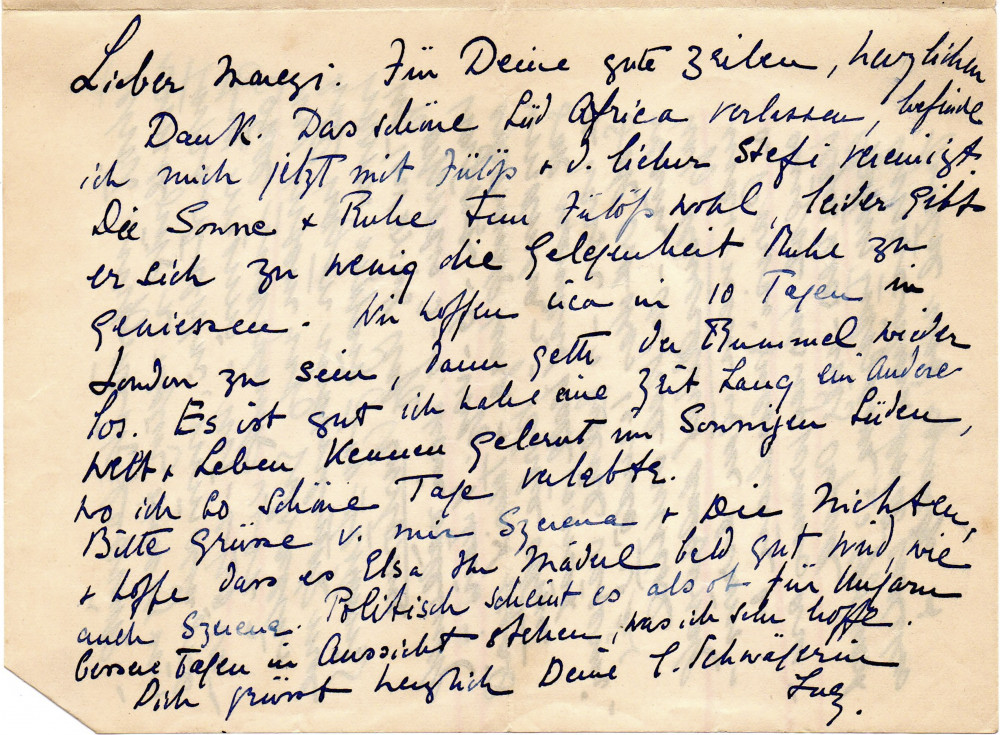 Lieber Maregi. Für Deine gute Zeilen, herzlichen
Dank. Das schöne Süd Africa verlassen, befinde
ich mich jetzt mit Fülöp + d. lieber Stefi vereinigt.
Die Sonne + Ruhe tun Fülöp wohl, leider gibt
er sich zu wenig die Gelegenheit Ruhe zu
geniessen. Wir hoffen in 10 Tagen in
London zu sein, dann geth der Rummel wieder
los. Es ist gut ich habe eine Zeit Lang ein Andere
Welt + Leben Kennen gelernt im Sonnigen Süden,
wo ich so schöne Tage verlebte.
Bitte Grüsse v. mir Szerena + Die Nichten,
+ hoffe dass es Elsa Ihr Mädel bald gut wird, wie
auch Szerena. Politisch scheint es als ob für Ungarn
bessere Tagen in Aussicht stehen, was ich sehr hoffe.
Dich grüsst herzlich Deine l. Schwägerin